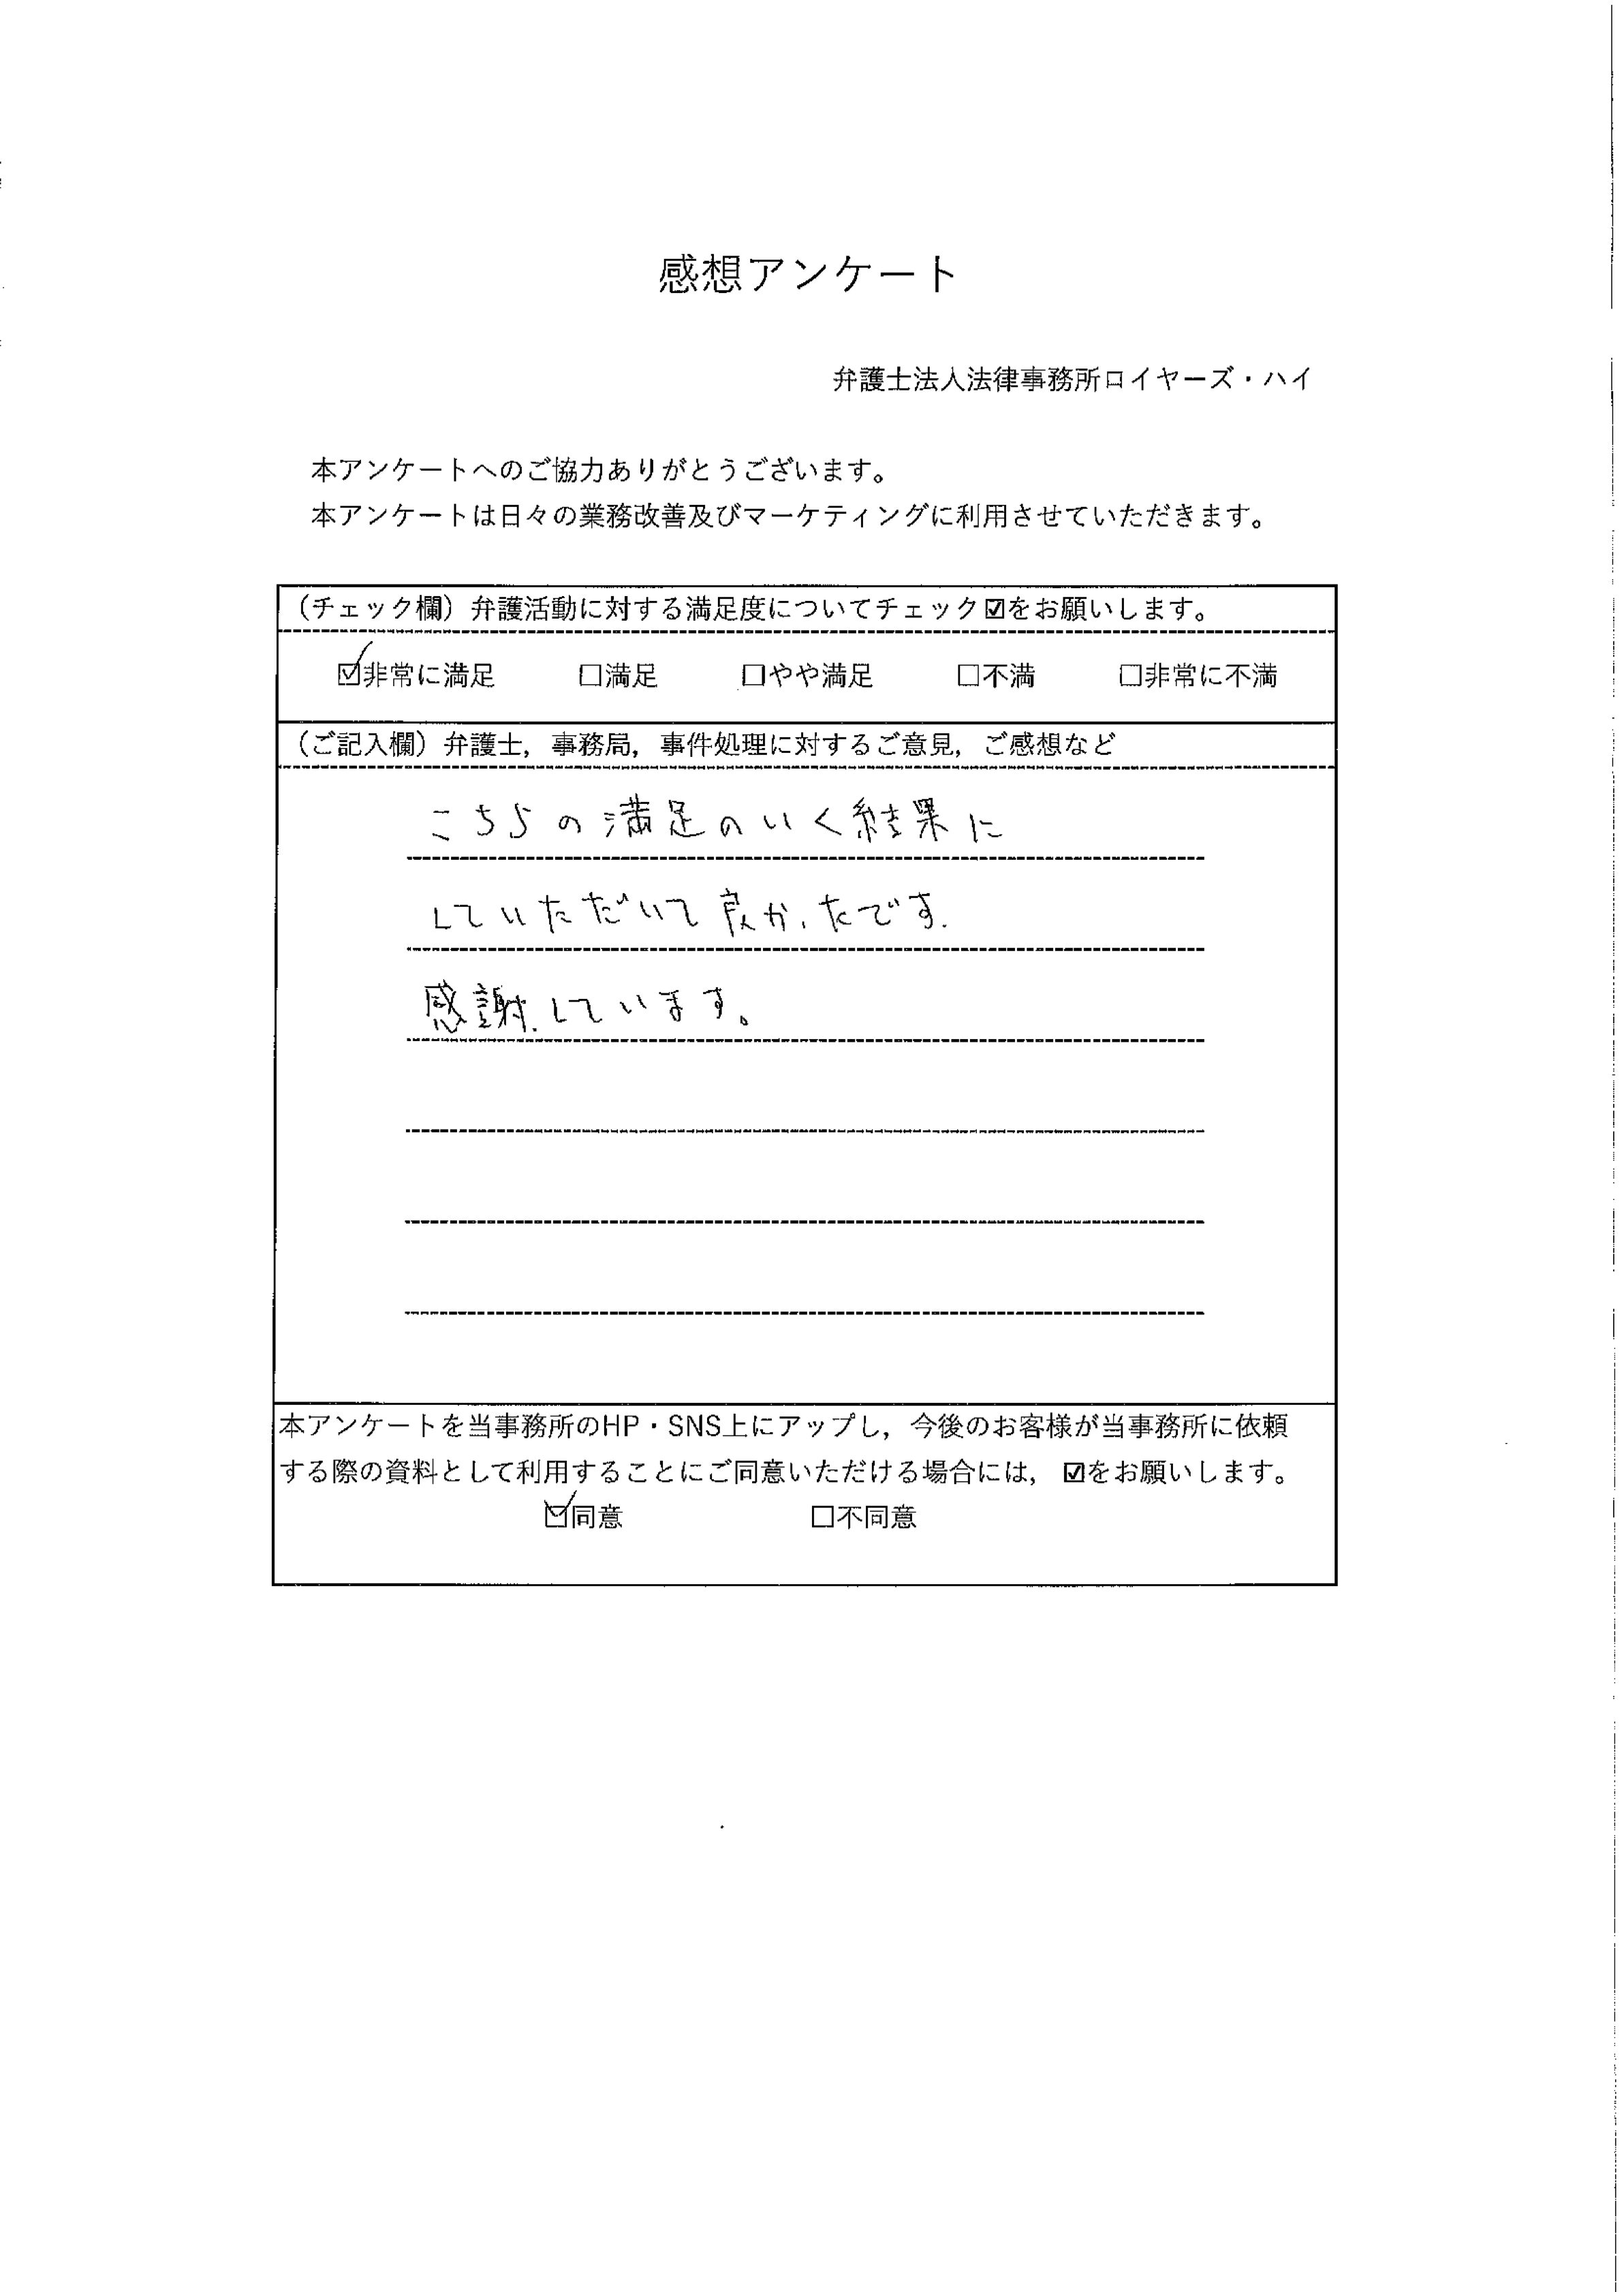 感想アンケート
弁護士法人法律事務所ロイヤーズ・ハイ
本アンケートへのご協力ありがとうございます。
本アンケートは日々の業務改善及びマーケティングに利用させていただきます。
（チェック欄）弁護活動に対する満足度についてチェック☑をお願いします。
☑非常に満足 □満足 □やや満足 □不満 □非常に不満
（ご記入欄）弁護士，事務局，事件処理に対するご意見，ご感想など
こちらの満足のいく結果に
していただいて良かったです.
感謝しています。
本アンケートを当事務所のHP・SNS上にアップし，今後のお客様が当事務所に依頼
する際の資料として利用することにご同意いただける場合には，☑をお願いします。
☑同意 □不同意